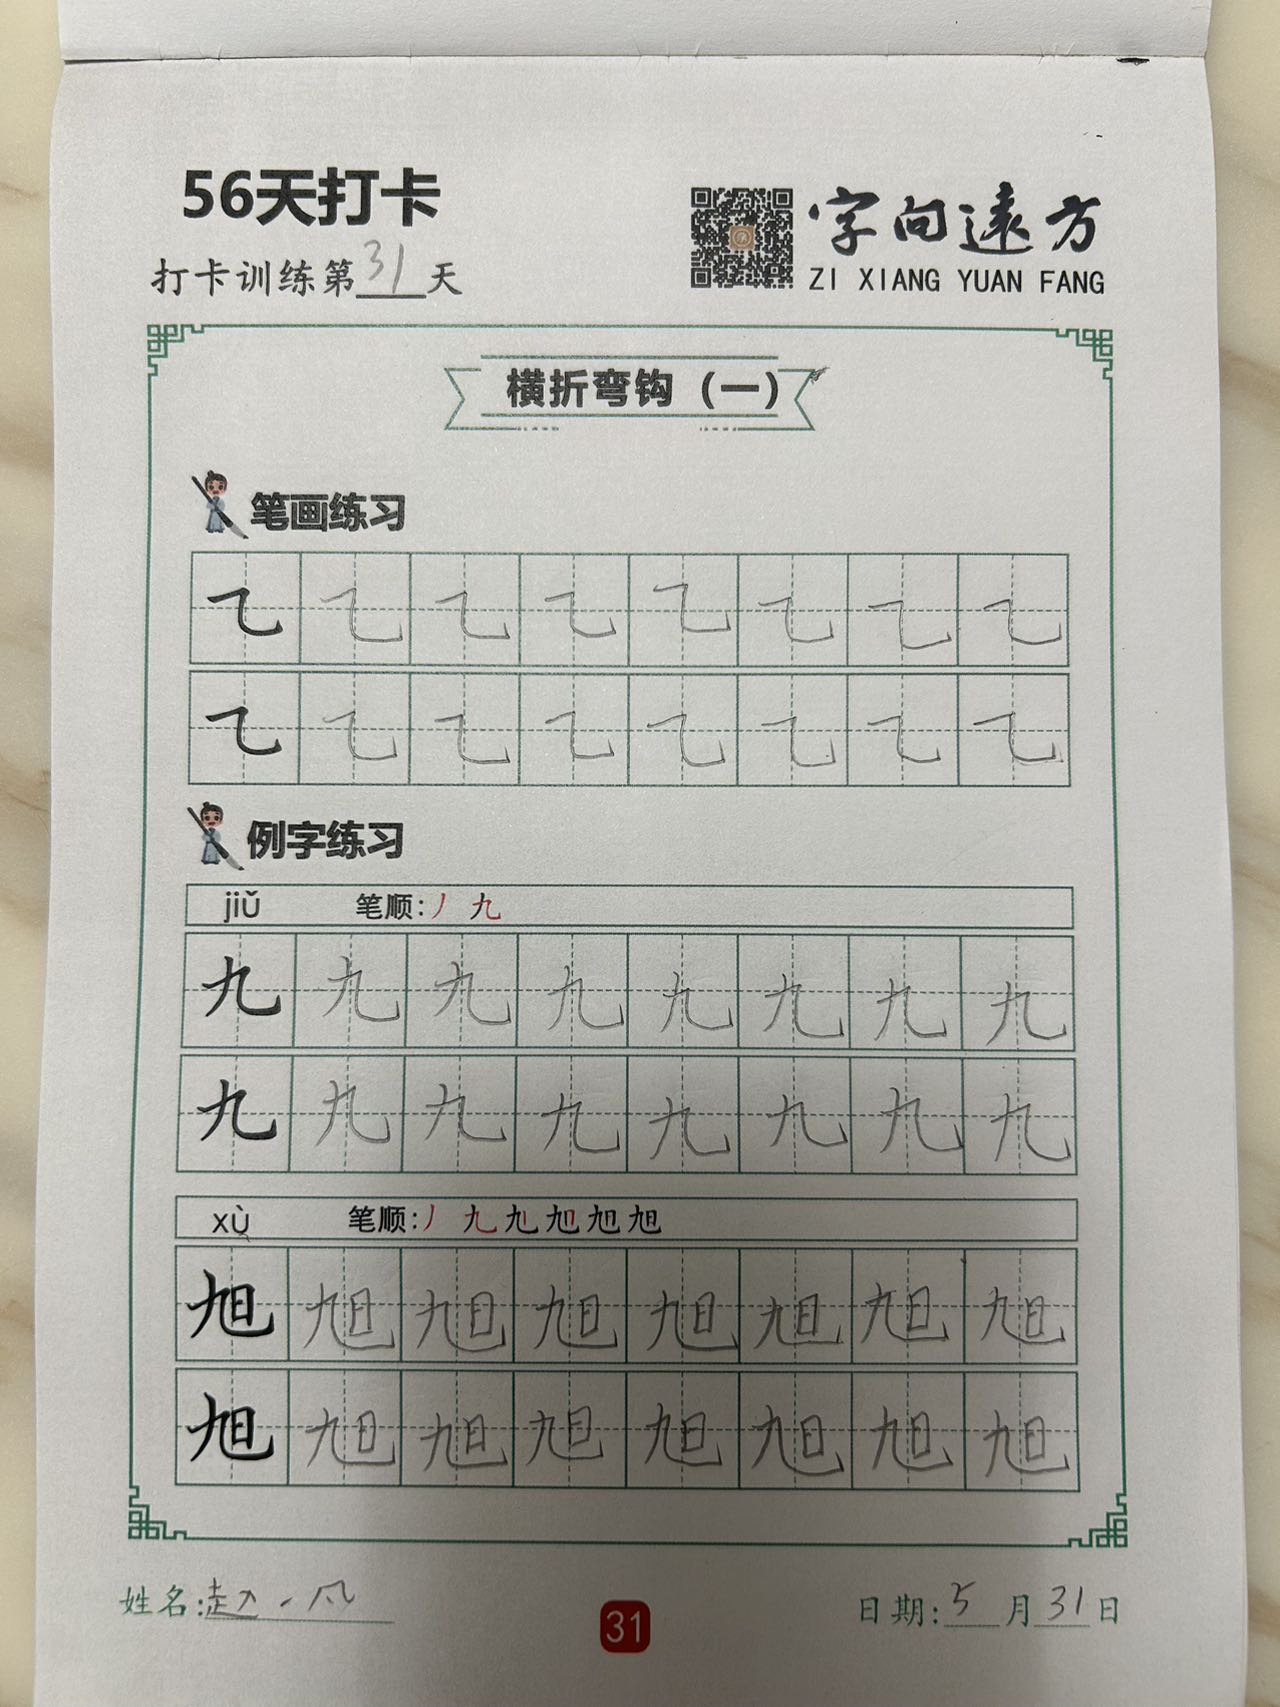 56天打卡
字向远方
打卡训练第31天
ZI XIANG YUAN FANG
横折弯钩（一）
笔画练习
㇈ ㇈ ㇈ ㇈ ㇈ ㇈ ㇈ ㇈
㇈ ㇈ ㇈ ㇈ ㇈ ㇈ ㇈ ㇈
例字练习
jiǔ 笔顺:丿 九
九 九 九 九 九 九 九 九
九 九 九 九 九 九 九 九
xù 笔顺:丿 九 旭 旭 旭
旭 旭 旭 旭 旭 旭 旭 旭
旭 旭 旭 旭 旭 旭 旭 旭
姓名:赵一
31
日期:5月31日